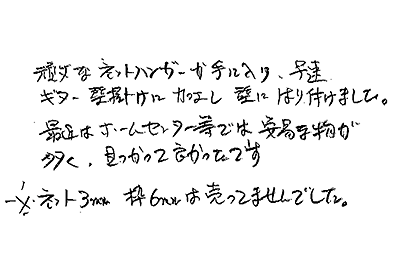 頑丈なネットハンガーが手に入り、早速
ギター壁掛けにカエし 壁にはり付けました。
最近はホームセンター等では安易な物が
多く、見つかって良かったです
※ネット3mm 枠6mmは売ってませんでした。